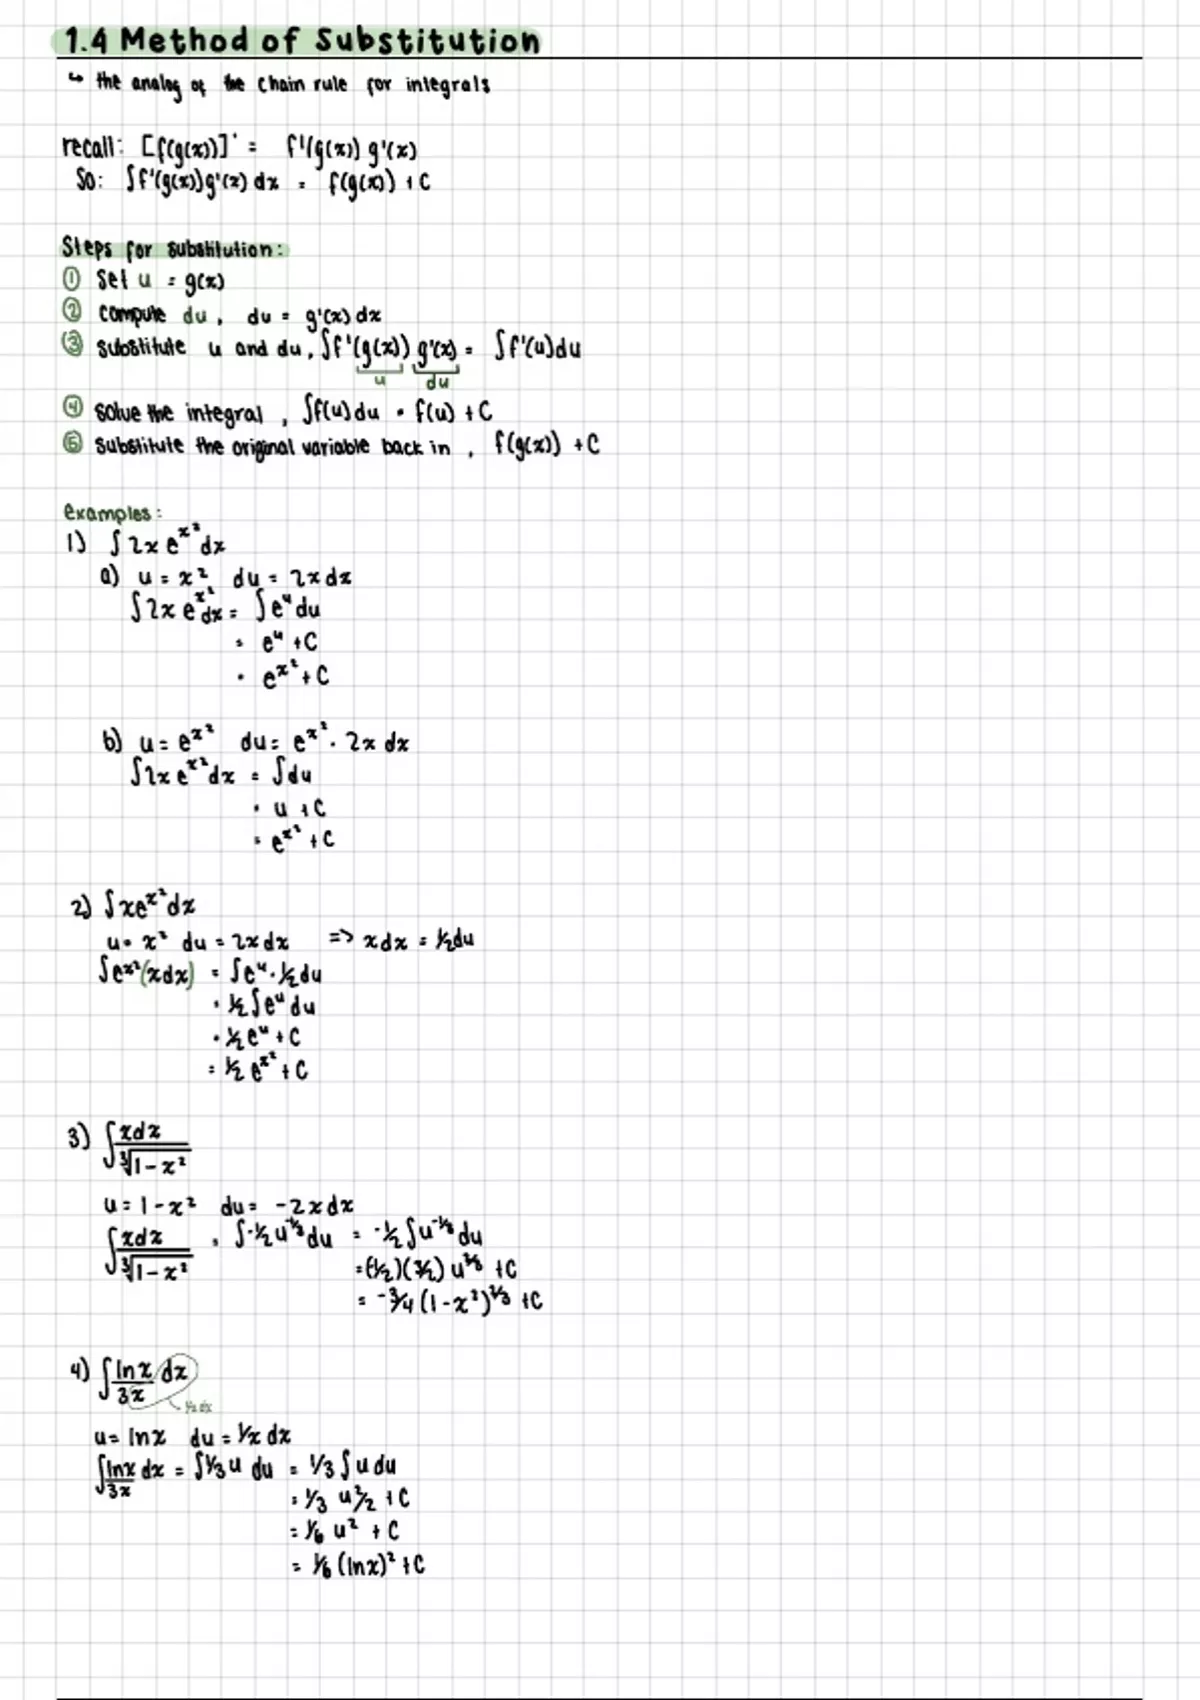 1.4 Method of Substitution
↳ the analog of the chain rule for integrals
recall: [f(g(x))]' = f'(g(x)) g'(x)
So: ∫f'(g(x))g'(x) dx = f(g(x)) + C
Steps for substitution:
① Set u = g(x)
② compute du, du = g'(x) dx
③ substitute u and du, ∫f'(g(x)) g'(x) = ∫f'(u)du
u du
④ solve the integral, ∫f(u)du = f(u) + C
⑤ substitute the original variable back in, f(g(x)) + C
examples:
1) ∫2x e^x² dx
a) u = x² du = 2x dx
∫2x e^x² dx = ∫e^u du
= e^u + C
= e^x² + C
b) u = e^x² du = e^x² · 2x dx
∫2x e^x² dx = ∫du
= u + C
= e^x² + C
2) ∫xe^x² dx
u = x² du = 2x dx => x dx = ½du
∫e^x² (x dx) = ∫e^u · ½du
= ½∫e^u du
= ½e^u + C
= ½ e^x² + C
3) ∫ xdx / ∛1-x²
u = 1-x² du = -2x dx
∫ xdx / ∛1-x² = ∫-½u^-⅓ du = -½∫u^-⅓ du
= (-½)(3/2) u^⅔ + C
= -¾(1-x²)^⅔ + C
4) ∫ lnx / 3x dx
1/x dx
u = lnx du = 1/x dx
∫ lnx / 3x dx = ∫⅓ u du = ⅓∫u du
= ⅓ u²/2 + C
= ⅙ u² + C
= ⅙ (lnx)² + C